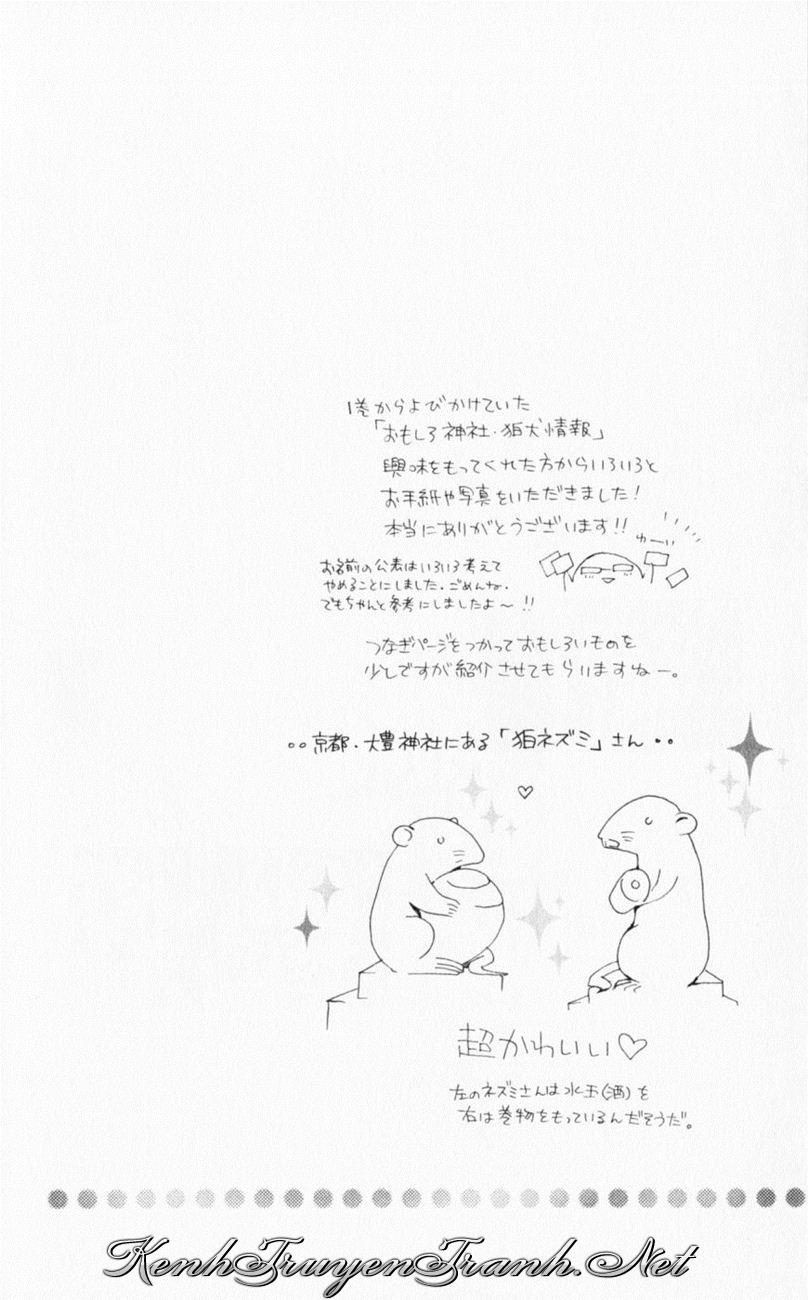 1巻からよびかけていた
「おもしろ神社・狛犬情報」
興味をもってくれた方からいろいろと
お手紙や写真をいただきました!
本当にありがとうございます!!
お名前の公表はいろいろ考えて
やめることにしました。ごめんね。
でもちゃんと参考にしましたよ〜!!
つなぎページをつかっておもしろいものを
少しですが紹介させてもらいますねー。
••京都・大豊神社にある「狛ネズミ」さん••
♡
超かわいい♡
左のネズミさんは水玉(酒)を
右は巻物をもっているんだそうだ。
KenhTruyenTranh.Net